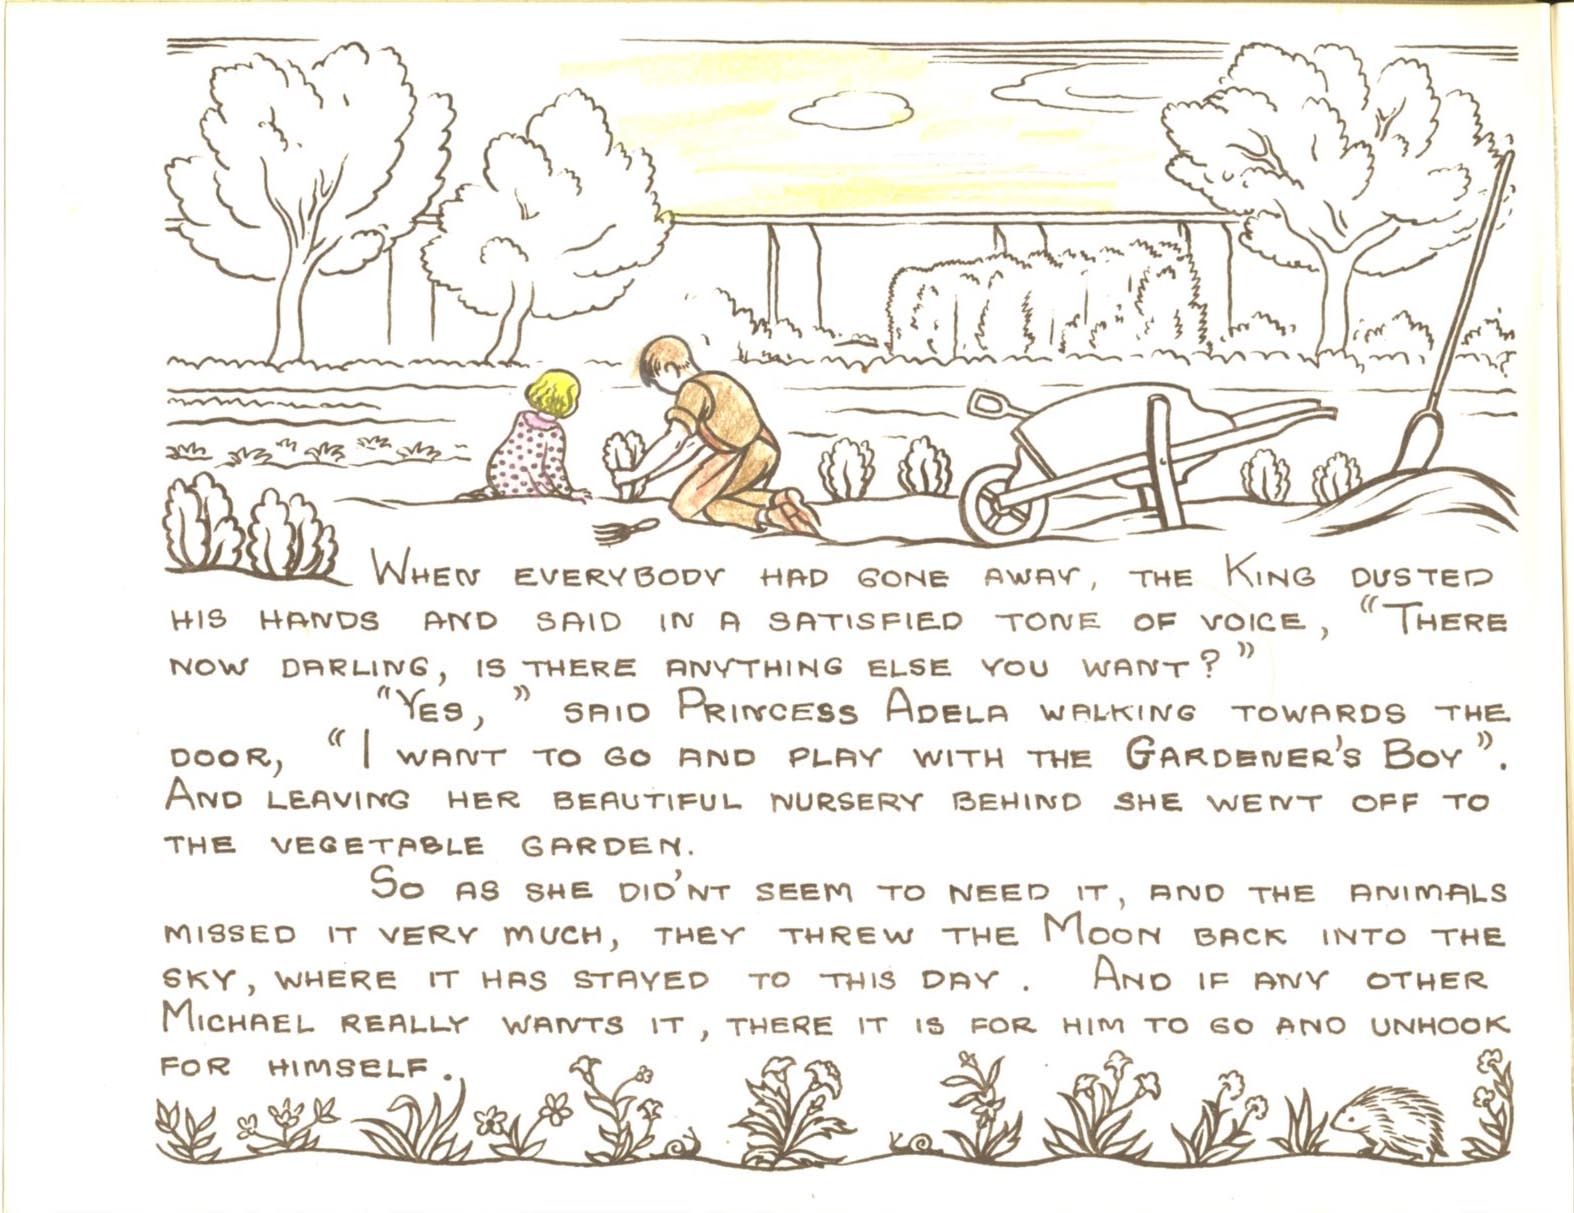 When everybody had gone away, the King dusted
his hands and said in a satisfied tone of voice, "There
now darling, is there anything else you want?"
"Yes," said Princess Adela walking towards the
door, "I want to go and play with the Gardener's Boy".
And leaving her beautiful nursery behind she went off to
the vegetable garden.
So as she did'nt seem to need it, and the animals
missed it very much, they threw the Moon back into the
sky, where it has stayed to this day. And if any other
Michael really wants it, there it is for him to go and unhook
for himself.